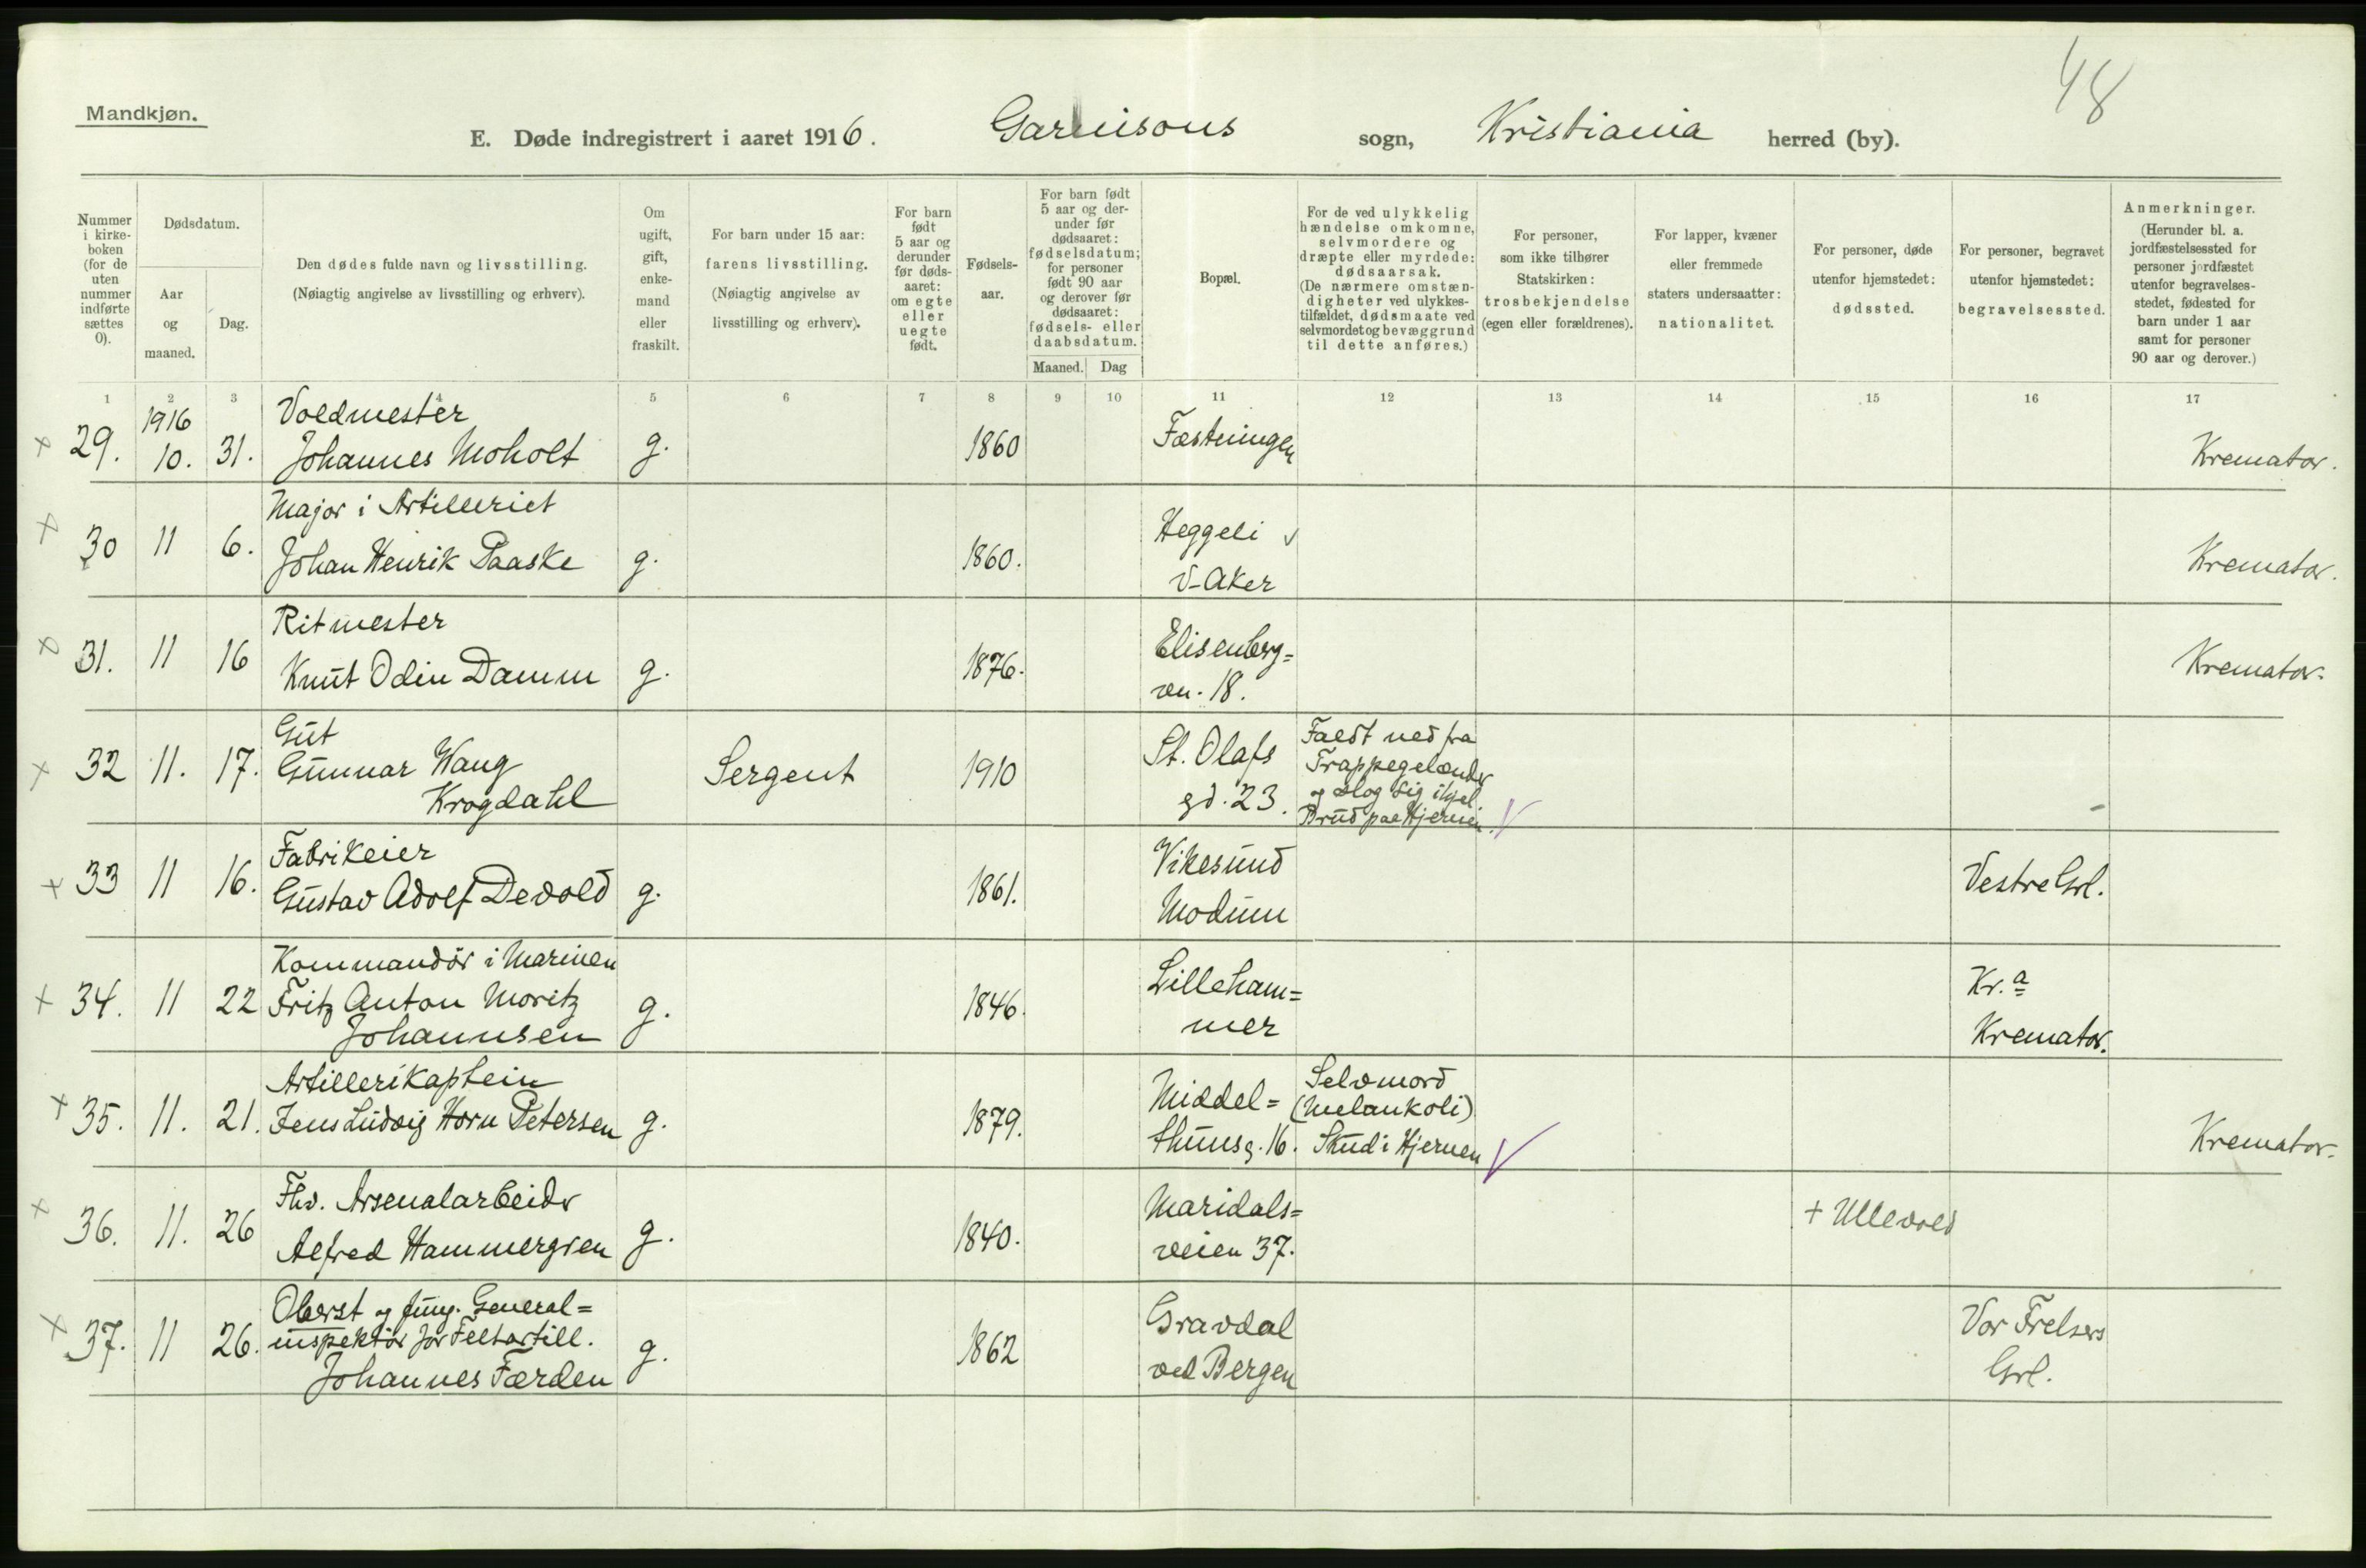 48
Mandkjøn.
E. Døde indregistrert i aaret 1916. Garnisons sogn, Kristiania herred (by).
Nummer
i kirke-
boken
(for de
uten
nummer
indførte
sættes
0).
Dødsdatum.
Aar
og
maaned.
Dag.
Den dødes fulde navn og livsstilling.
(Nøiagtig angivelse av livsstilling og erhverv).
Om
ugift,
gift,
enke-
mand
eller
fraskilt.
For barn under 15 aar:
farens livsstilling.
(Nøiagtig angivelse av
livsstilling og erhverv).
For barn
født
5 aar og
derunder
før døds-
aaret:
om egte
eller
uegte
født.
Fødsels-
aar.
For barn født
5 aar og der-
under før
dødsaaret:
fødselsdatum;
for personer
født 90 aar
og derover før
dødsaaret:
fødsels- eller
daabsdatum.
Maaned. Dag
Bopæl.
For de ved ulykkelig
hændelse omkomne,
selvmordere og
dræpte eller myrdede:
dødsaarsak.
(De nærmere omstæn-
digheter ved ulykkes-
tilfældet, dødsmaate ved
selvmordet og bevæggrund
til dette anføres.)
For personer,
som ikke tilhører
Statskirken:
trosbekjendelse
(egen eller forældrenes).
For lapper, kvæner
eller fremmede
staters undersaatter:
nationalitet.
For personer, døde
utenfor hjemstedet:
dødssted.
For personer, begravet
utenfor hjemstedet:
begravelsessted.
Anmerkninger.
(Herunder bl. a.
jordfæstelsessted for
personer jordfæstet
utenfor begravelses-
stedet, fødested for
barn under 1 aar
samt for personer
90 aar og derover.)
1 2 3 4 5 6 7 8 9 10 11 12 13 14 15 16 17
1916 Voldmester
+ 29. 10. 31. Johannes Moholt g. 1860 Fæstningen Kremator.
Major i Artilleriet
+ 30 11 6. Johan Henrik Paaske g. 1860. Heggeli
V-Aker Kremator.
Ritmester
+ 31. 11 16 Knut Odin Damm g. 1876. Elisenberg=
ven. 18. Kremator.
Gut
+ 32 11. 17. Gunnar Wang
Krogdahl Sergent 1910 St. Olafs
gd. 23. Faldt ned fra
Trappegelænder
og slog sig ihjel.
Brud paa Hjernen. -
Fabrikeier
+ 33 11 16. Gustav Adolf Devold g. 1861. Vikesund
Modum Vestre Grl.
Kommandör i Marinen
+ 34. 11 22 Fritz Anton Moritz
Johannsen g. 1846. Lilleham=
mer Kr.a
Kremator.
Artillerikaptein
+ 35. 11. 21. Jens Ludvig Horn Petersen g. 1879. Middel=
thunsg. 16. Selvmord
(Melankoli)
Skud i Hjernen Kremator.
Fhv. Arsenalarbeider
+ 36. 11. 26 Alfred Hammergren g. 1840. Maridals=
veien 37. + Ullevold
Oberst og fung. General=
inspektör for Feltartill.
+ 37. 11 26. Johannes Færden g. 1862 Gravdal
ved Bergen Vor Frelsers
Grl.